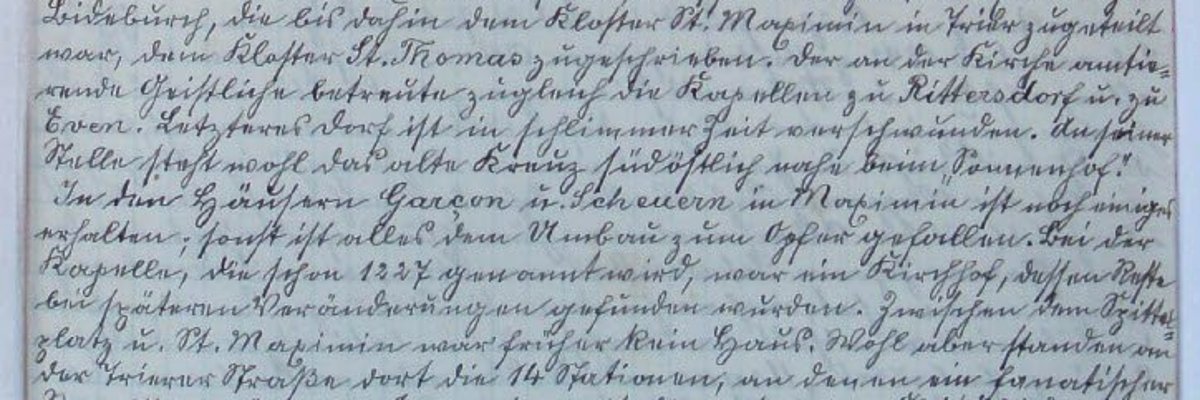 Bideburch, die bis dahin dem Kloster St. Maximin in Trier zugeteilt
war, dem Kloster St. Thomas zugeschrieben. Der an der Kirche amtie-
rende Geistliche betreute zugleich die Kapellen zu Rittersdorf u. zu
Even. Letzteres Dorf ist in schlimmer Zeit verschwunden. An seiner
Stelle steht wohl das alte Kreuz südöstlich nahe beim „Sonnenhof."
In den Häusern Garçon u. Scheuern in Maximin ist noch einiges
erhalten; sonst ist alles dem Umbau zum Opfer gefallen. Bei der
Kapelle, die schon 1227 genannt wird, war ein Kirchhof, dessen Reste
bei späteren Veränderungen gefunden wurden. Zwischen dem Spittel-
platz u. St. Maximin war früher kein Haus. Wohl aber standen an
der Trierer Straße dort die 14 Stationen, an denen ein fanatischer